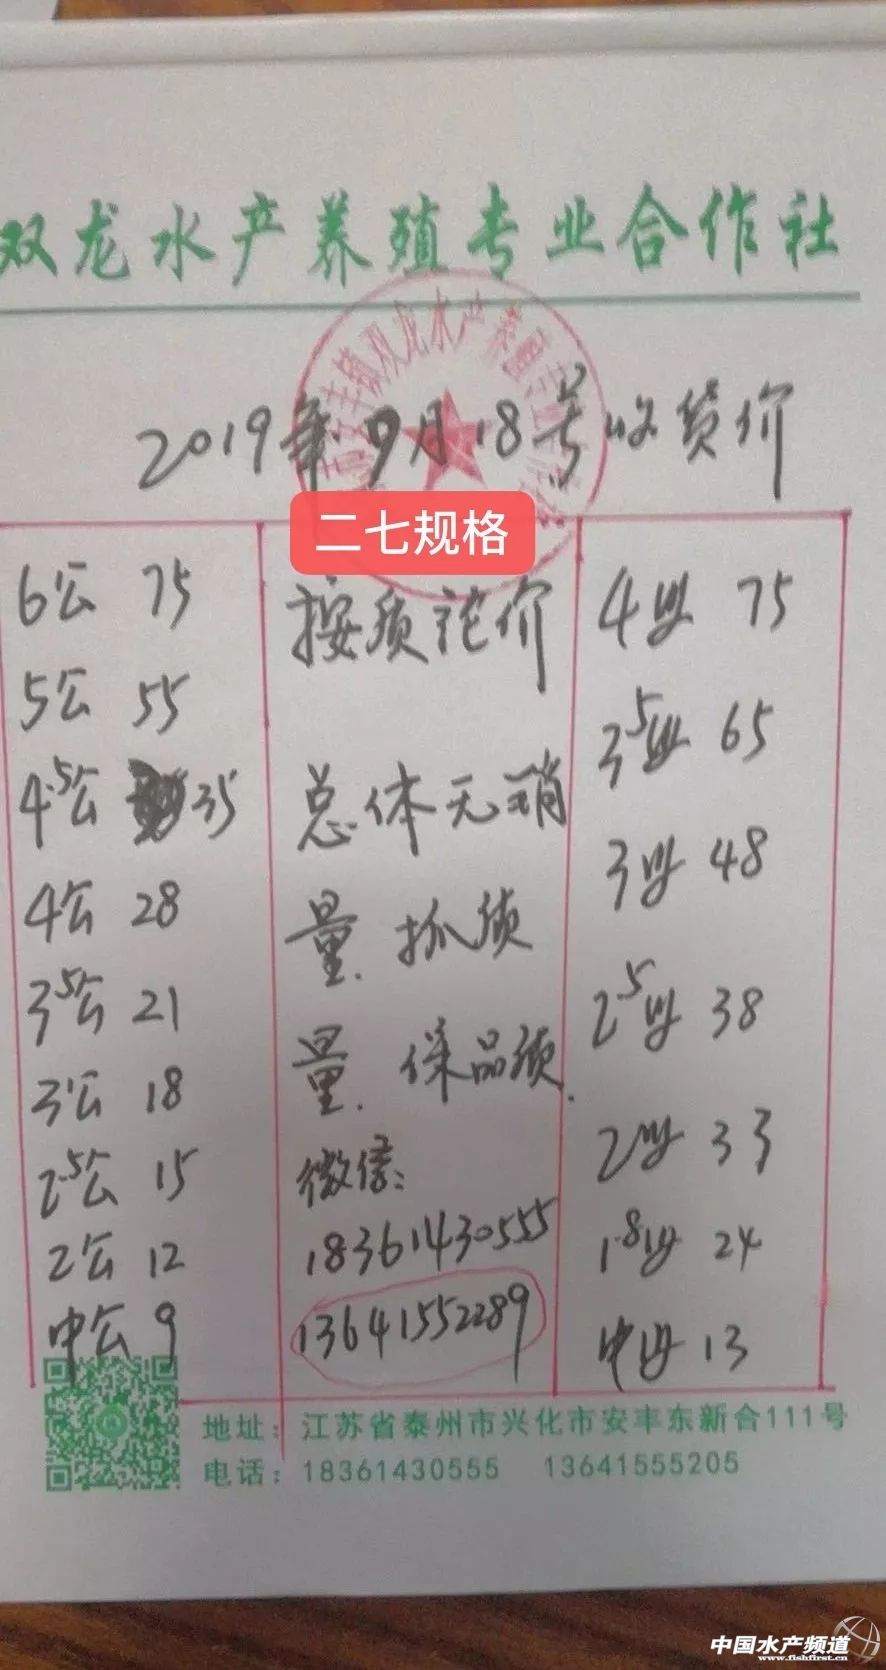 双龙水产养殖专业合作社
2019年9月18号收货价
二七规格
6公 75
5公 55
4.5公 35
4公 28
3.5公 21
3公 18
2.5公 15
2公 12
中公 9
按质论价
总体无销
量.抓质
量.保品质.
微信:
18361430555
13641552289
4母 75
3.5母 65
3母 48
2.5母 38
2母 33
1.8母 24
中母 13
地址:江苏省泰州市兴化市安丰东新合111号
电话:18361430555 13641555205
中国水产频道
www.fishfirst.cn